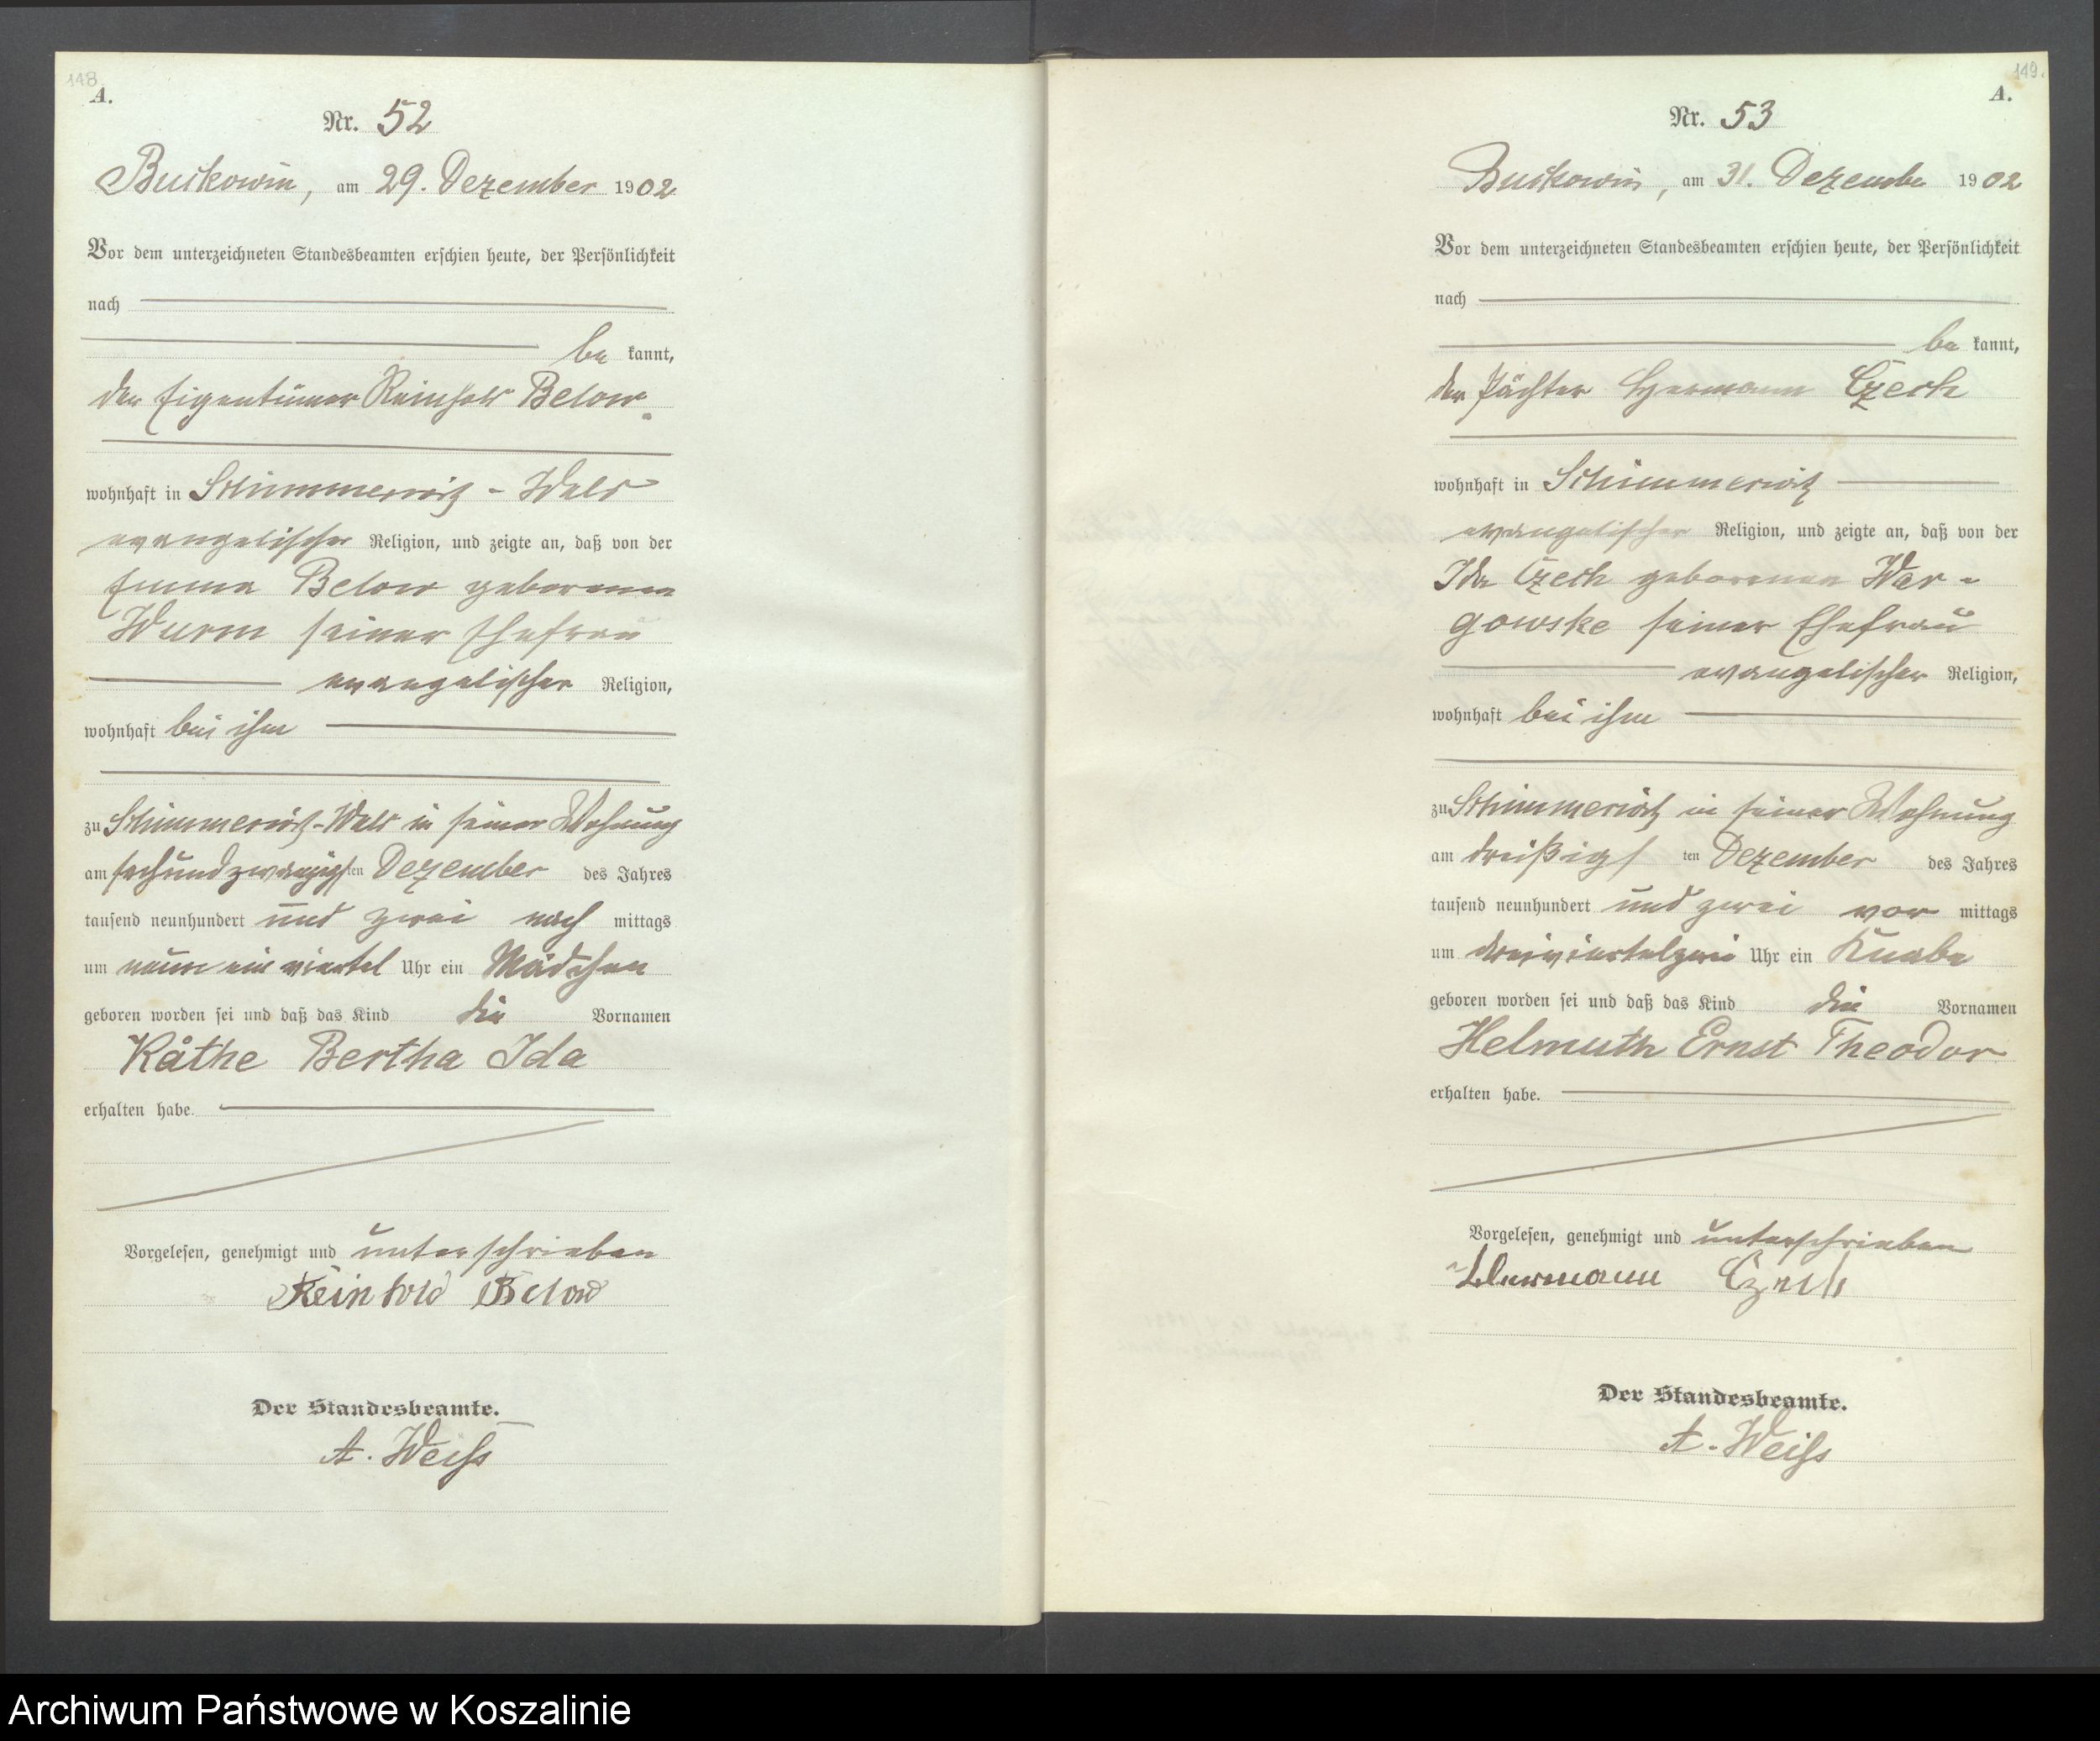 148.
A.
Nr. 52
Buckowin, am 29. Dezember 1902
Vor dem unterzeichneten Standesbeamten erschien heute, der Persönlichkeit
nach
be kannt,
der Eigentümer Reinhold Below
wohnhaft in Schimmerwitz - Wald
evangelischer Religion, und zeigte an, daß von der
Emma Below geborenen
Wurm seiner Ehefrau
evangelischer Religion,
wohnhaft bei ihm
zu Schimmerwitz-Wald in seiner Wohnung
am sechsundzwanzigsten Dezember des Jahres
tausend neunhundert und zwei nach mittags
um neun ein viertel Uhr ein Mädchen
geboren worden sei und daß das Kind die Vornamen
Käthe Bertha Ida
erhalten habe.
Vorgelesen, genehmigt und unterschrieben
Reinhold Below
Der Standesbeamte.
A. Weiß
149.
A.
Nr. 53
Buckowin, am 31. Dezember 1902
Vor dem unterzeichneten Standesbeamten erschien heute, der Persönlichkeit
nach
be kannt,
der Pächter Hermann Czech
wohnhaft in Schimmerwitz
evangelischer Religion, und zeigte an, daß von der
Ida Czech geborenen War-
gowske seiner Ehefrau
evangelischer Religion,
wohnhaft bei ihm
zu Schimmerwitz in seiner Wohnung
am dreißigsten Dezember des Jahres
tausend neunhundert und zwei vor mittags
um dreiviertelzwei Uhr ein Knabe
geboren worden sei und daß das Kind die Vornamen
Helmuth Ernst Theodor
erhalten habe.
Vorgelesen, genehmigt und unterschrieben
Hermann Czech
Der Standesbeamte.
A. Weiß
Archiwum Państwowe w Koszalinie